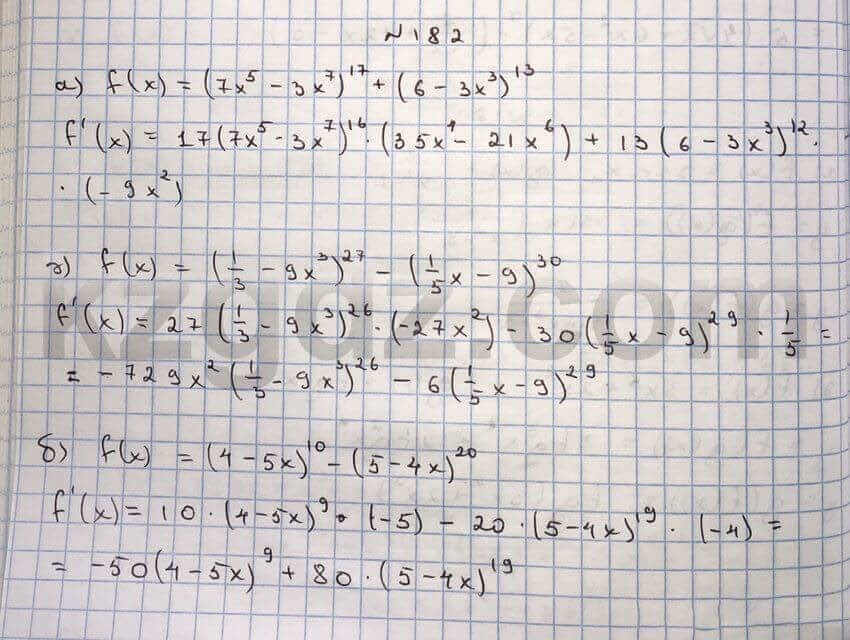 №182
а) f(x) = (7x⁵ - 3x⁷)¹⁷ + (6 - 3x³)¹³
f'(x) = 17(7x⁵ - 3x⁷)¹⁶ · (35x⁴ - 21x⁶) + 13(6 - 3x³)¹² ·
· (-9x²)
г) f(x) = (1/3 - 9x³)²⁷ - (1/5x - 9)³⁰
f'(x) = 27(1/3 - 9x³)²⁶ · (-27x²) - 30(1/5x - 9)²⁹ · 1/5 =
= -729x²(1/3 - 9x³)²⁶ - 6(1/5x - 9)²⁹
б) f(x) = (4 - 5x)¹⁰ - (5 - 4x)²⁰
f'(x) = 10 · (4 - 5x)⁹ · (-5) - 20 · (5 - 4x)¹⁹ · (-4) =
= -50(4 - 5x)⁹ + 80 · (5 - 4x)¹⁹
kzgdz.com